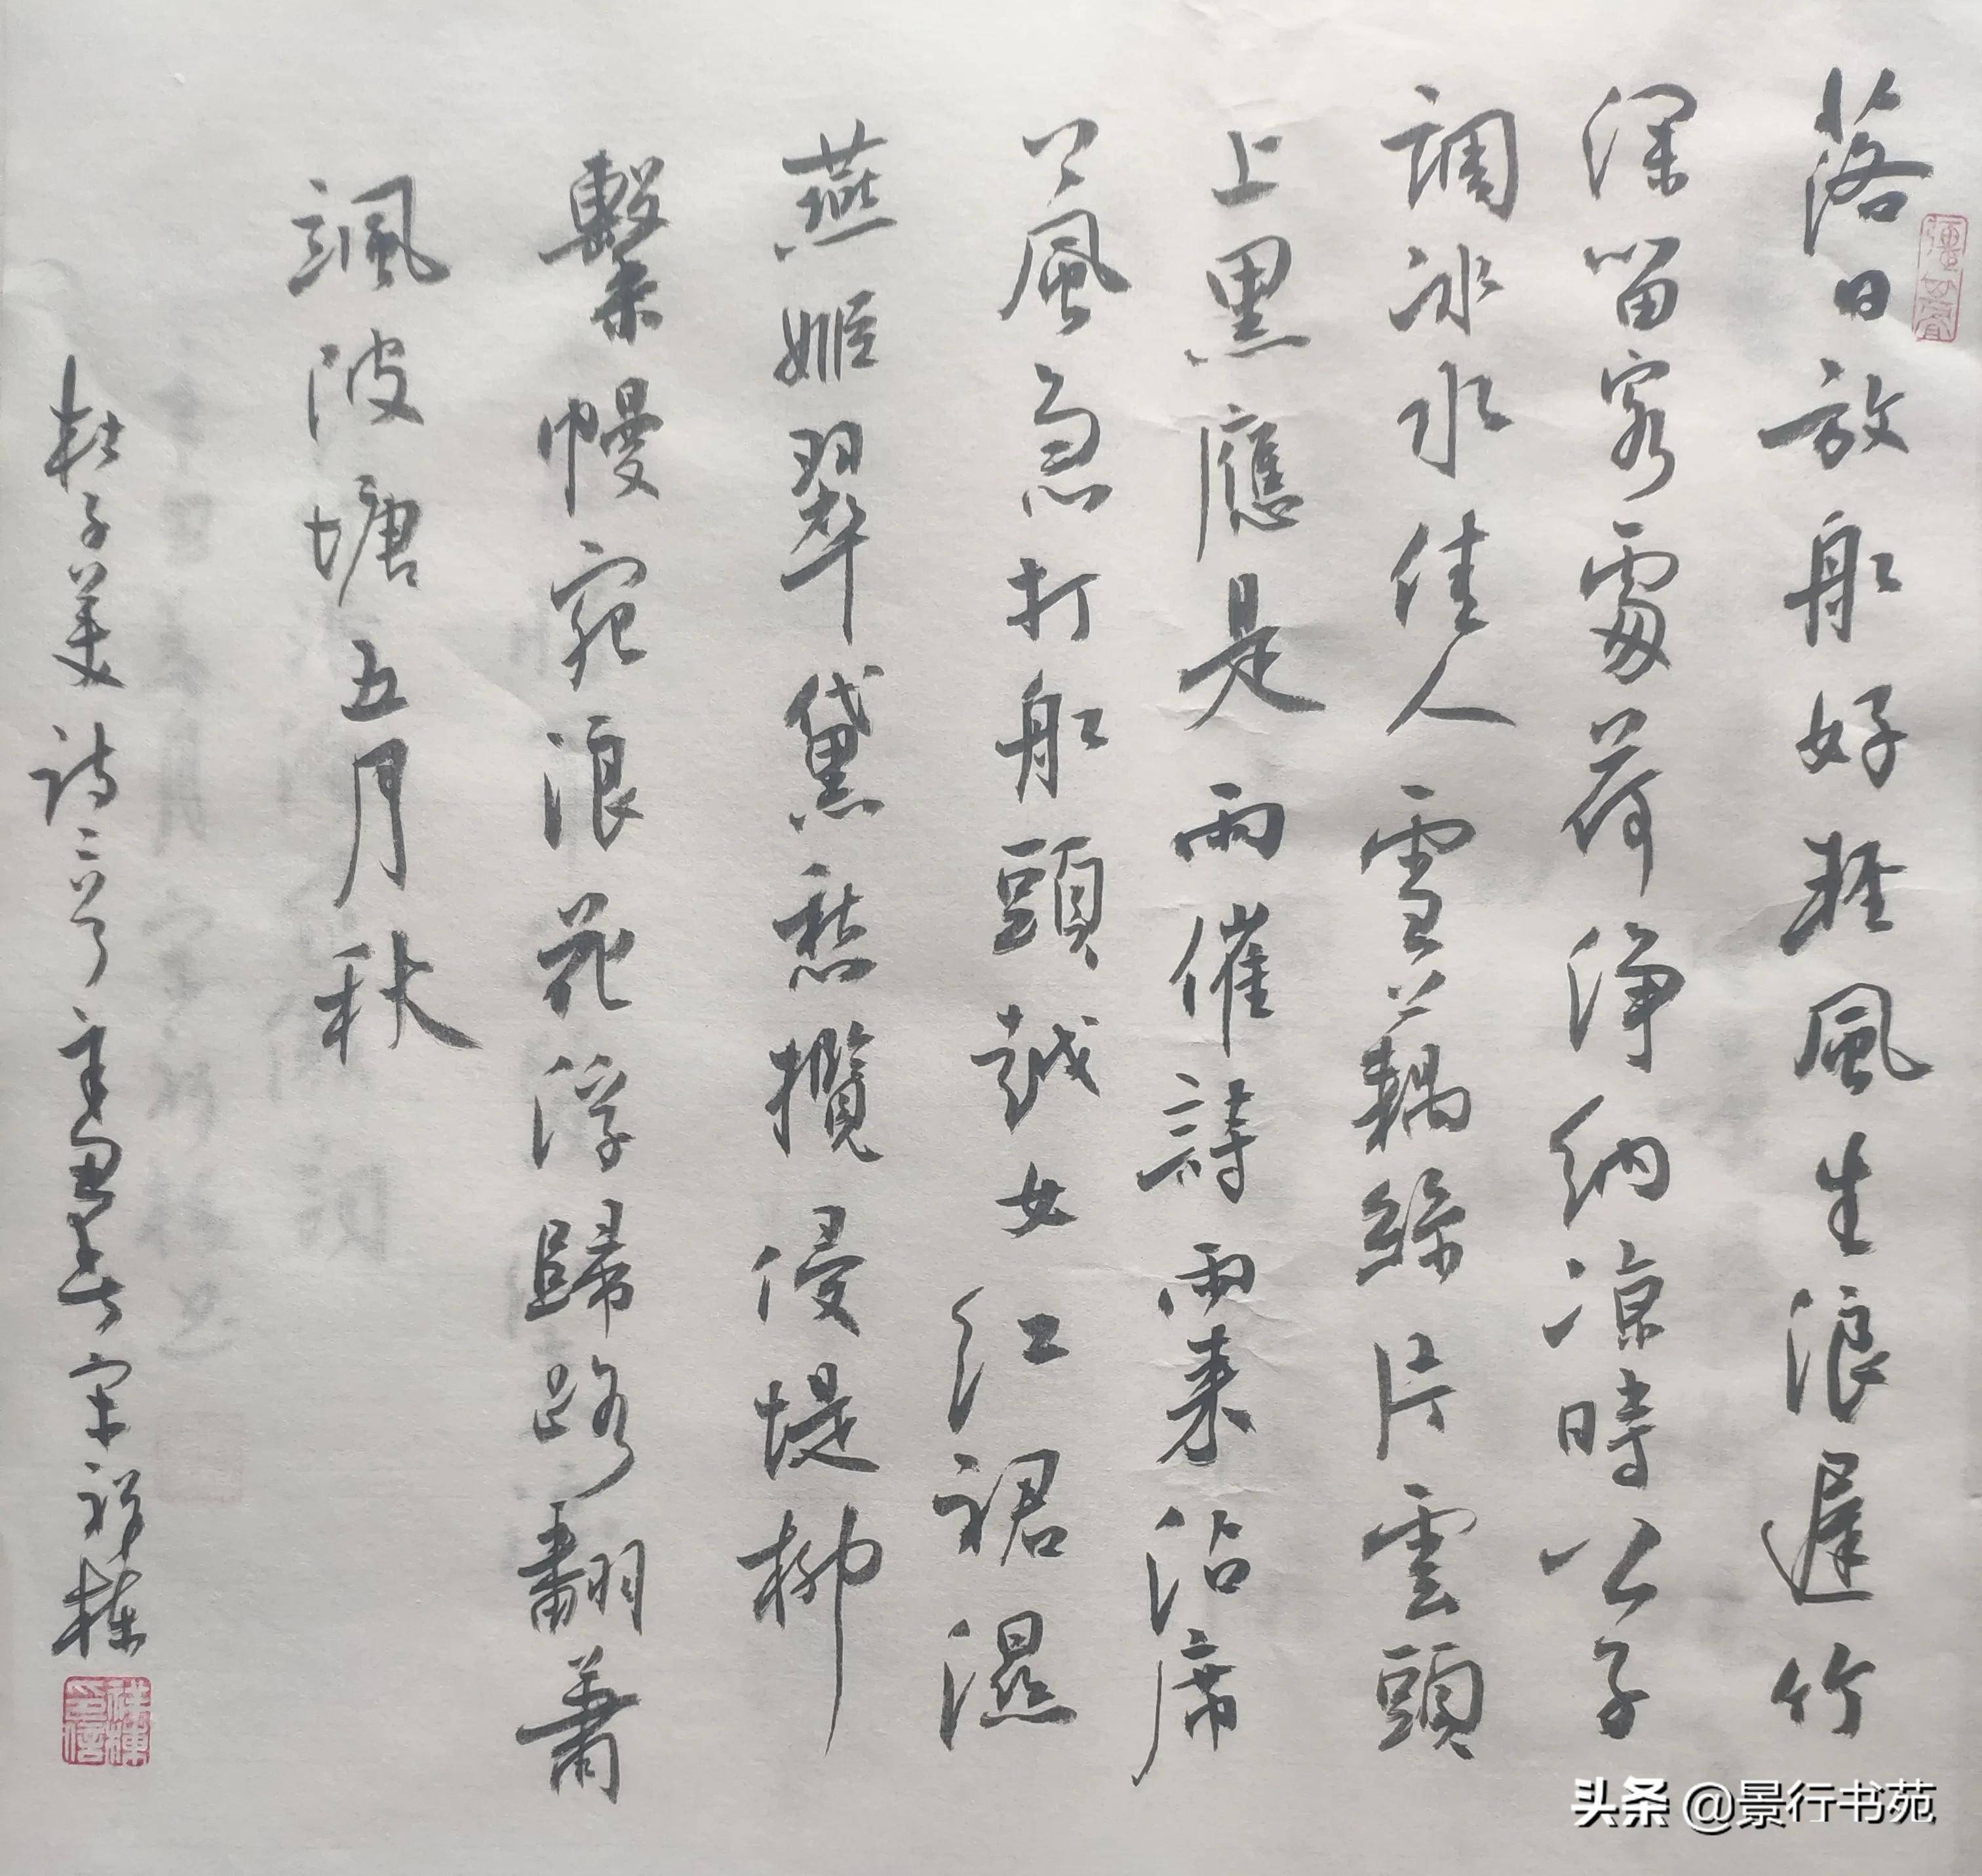 落日放船好輕風生浪遲竹
深留客處荷淨納凉時公子
調冰水佳人雪藕絲片雲頭
上黑應是雨催詩雨來沾席
上風急打船頭越女紅裙濕
燕姬翠黛愁攬侵堤柳
繫幔宛浪花浮歸路翻蕭
颯陂塘五月秋
杜子美詩二首辛丑春宋祥棟
祥棟印信
头条 @景行书苑